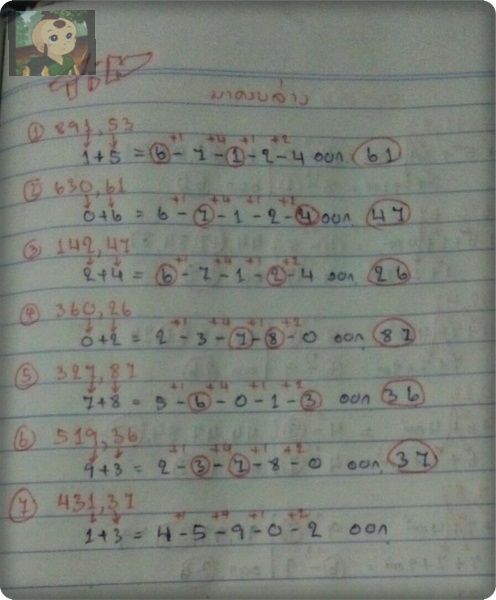 มาครบล่าง
① 891,53
+1 +4 +1 +2
1+5 = 6-7-1-2-4 ออก 61
② 630,61
+1 +4 +1 +2
0+6 = 6-7-1-2-4 ออก 47
③ 142,47
+1 +4 +1 +2
2+4 = 6-7-1-2-4 ออก 26
④ 360,26
+1 +4 +1 +2
0+2 = 2-3-7-8-0 ออก 87
⑤ 327,87
+1 +4 +1 +2
7+8 = 5-6-0-1-3 ออก 36
⑥ 519,36
+1 +4 +1 +2
9+3 = 2-3-7-8-0 ออก 37
⑦ 431,37
+1 +4 +1 +2
1+3 = 4-5-9-0-2 ออก